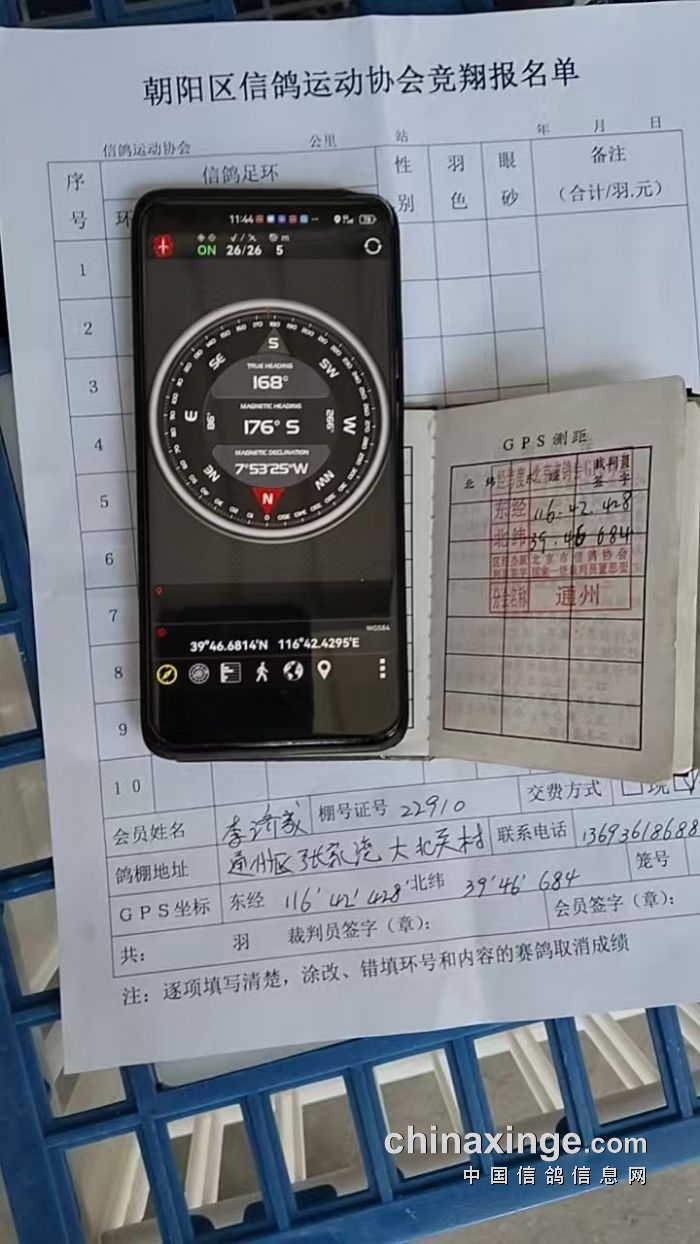 朝阳区信鸽运动协会竞翔报名单
信鸽运动协会 公里 站 年 月 日
序号 信鸽足环 性别 羽色 眼砂 备注(合计/羽.元)
环
1
2
3
4
5
6
7
8
9
10
11:44
ON 26/26 5
m
170 180 190
S
SE SW
TRUE HEADING
168°
MAGNETIC HEADING
E 86° 176° S 266° W
MAGNETIC DECLINATION
7°53'25"W
NE NW
N
WGS84
39°46.6814'N 116°42.4295'E
GPS测距
北纬
东经 116.42.428
北纬 39.46 684
分会名称 通州
会员姓名 棚号证号 22910 交费方式
鸽棚地址 通州区张家湾大北关村 联系电话 13693618688
GPS坐标 东经 116′42′428′ 北纬 39′46′684 笼号
共: 羽 裁判员签字(章): 会员签字(章):
注:逐项填写清楚,涂改、错填环号和内容的赛鸽取消成绩
chinaxinge.com
中国信鸽信息网